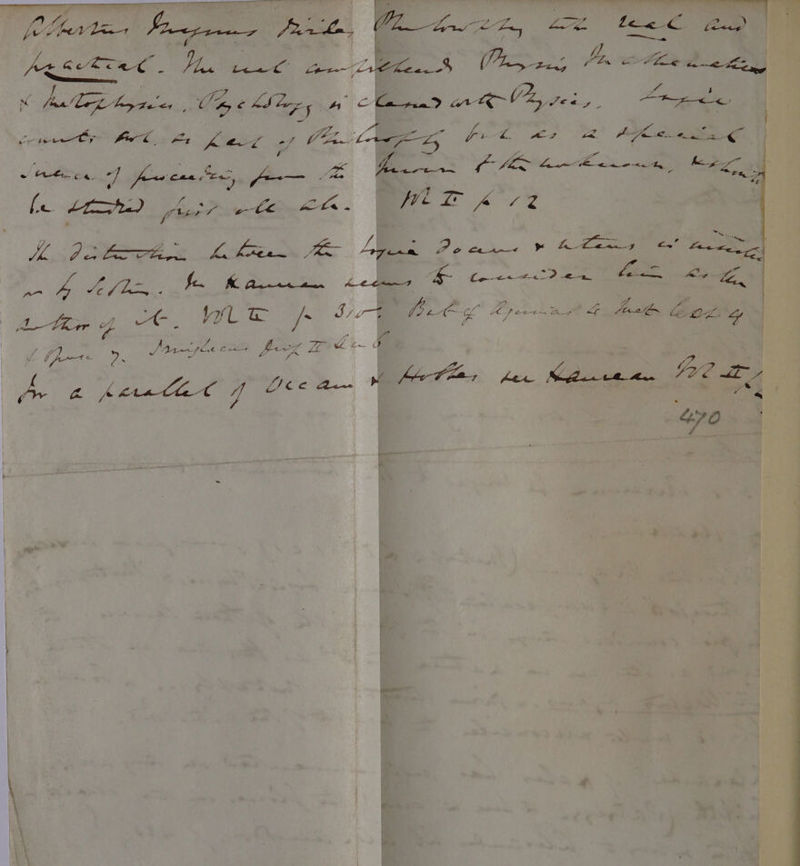 Albertus Magnus divides Philosophy into real and
practical. The real comprehends Physics Mathematics
& Metaphysics. Psychology is classed with Physics. Logic
counts not as part of Philosophy but as a special
science of proceeding from the known to the unknown, & should
be studied first of all. Vol II p 12
The distinction between the logica docens & utens is
by Scotus. M Haureau seems to consider him as the
author of it. Vol II p 310. But cf Aquinas in Met lect 4
Smiglecius Disp II
For a parallel of Occam & Hobbes see Haureau Vol II p
470